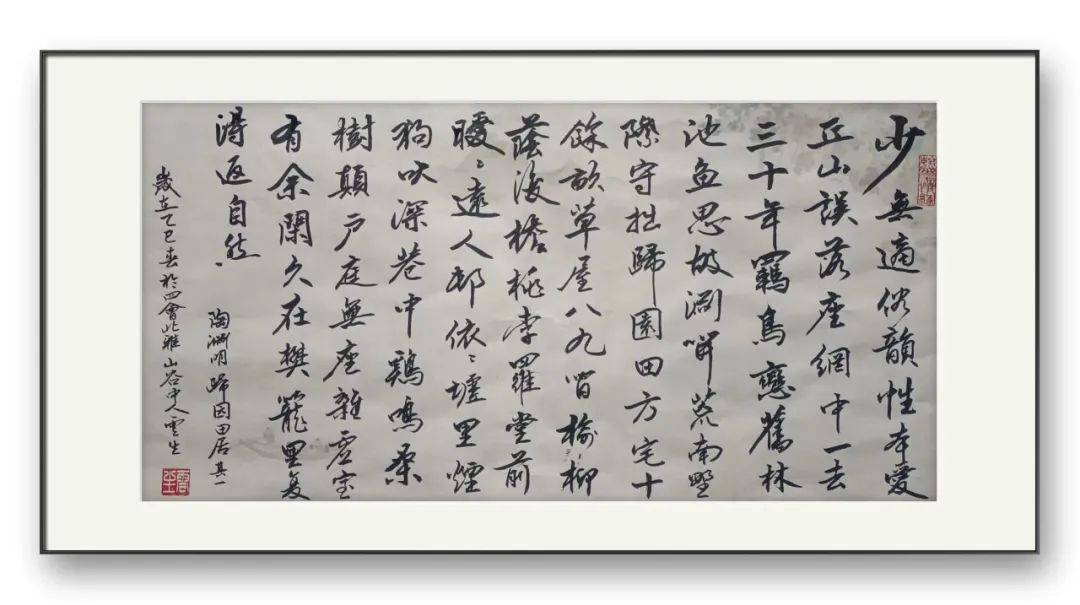 少無適俗韻性本愛
丘山誤落座網中一去
三十年羈鳥戀舊林
池魚思故淵開荒南野
際守拙歸園田方宅十
餘畝草屋八九間榆柳
蔭後檐桃李羅堂前
曖〻遠人邨依〻墟里煙
狗吠深巷中鷄鳴桑
樹顛戶庭無座雜虛室
有余閑久在樊籠里复
得返自然
陶淵明歸园田居其一
歲在乙巳春於四會北雅山谷中人雲生
雲生